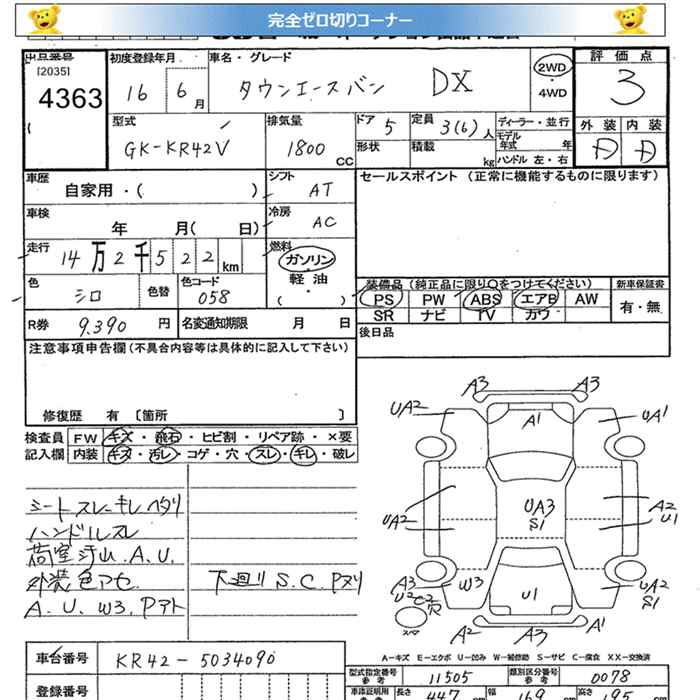 完全ゼロ切りコーナー
出品番号 初度登録年月 車名・グレード 評価点
[2035]
4363 16 6月 タウンエースバン DX 2WD ・4WD 3
型式 排気量 ドア 5 定員 3(6)人 ディーラー・並行 外装 内装
GK-KR42V 1800 CC 形状 積載 kg モデル年式 年 ハンドル 左・右 D D
車歴 自家用・( ) シフト AT セールスポイント (正常に機能するものに限ります)
車検 年 月( 日) 冷房 AC
走行 14万2千522km 燃料 ガソリン・軽油・( )
色 シロ 色替 色コード 058 装備品 (純正品に限り○をつけてください) 新車保証書
PS PW ABS エアB AW 有・無
SR ナビ TV カワ
R券 9,390円 名変通知期限 月 日 後日品
注意事項申告欄(不具合内容等は具体的に記入して下さい)
修復歴 有 [箇所 ]
検査員 FW キズ・飛石・ヒビ割・リペア跡・×要
記入欄 内装 キズ・汚レ・コゲ・穴・スレ・キレ・破レ
シートスレキレヘタリ
ハンドルスレ
荷室汚レ.A.U.
外装色アセ 下廻リ S.C.Pヌリ
A.U.W3.Pアト
A3 A3
UA2 A1 UA1
UA3 S1
UA2 A2 U1
A3 W3 U1 UA2 S1
スペア A2 A3 A1
A-キズ E-エクボ U-凹み W-補修跡 S-サビ C-腐食 XX-交換済
車台番号 KR42-5034090
型式指定番号 参考 11505 類別区分番号 参考 0078
登録番号 車検証明用 参考 長さ 447 cm 幅 169 cm 高さ 195 cm